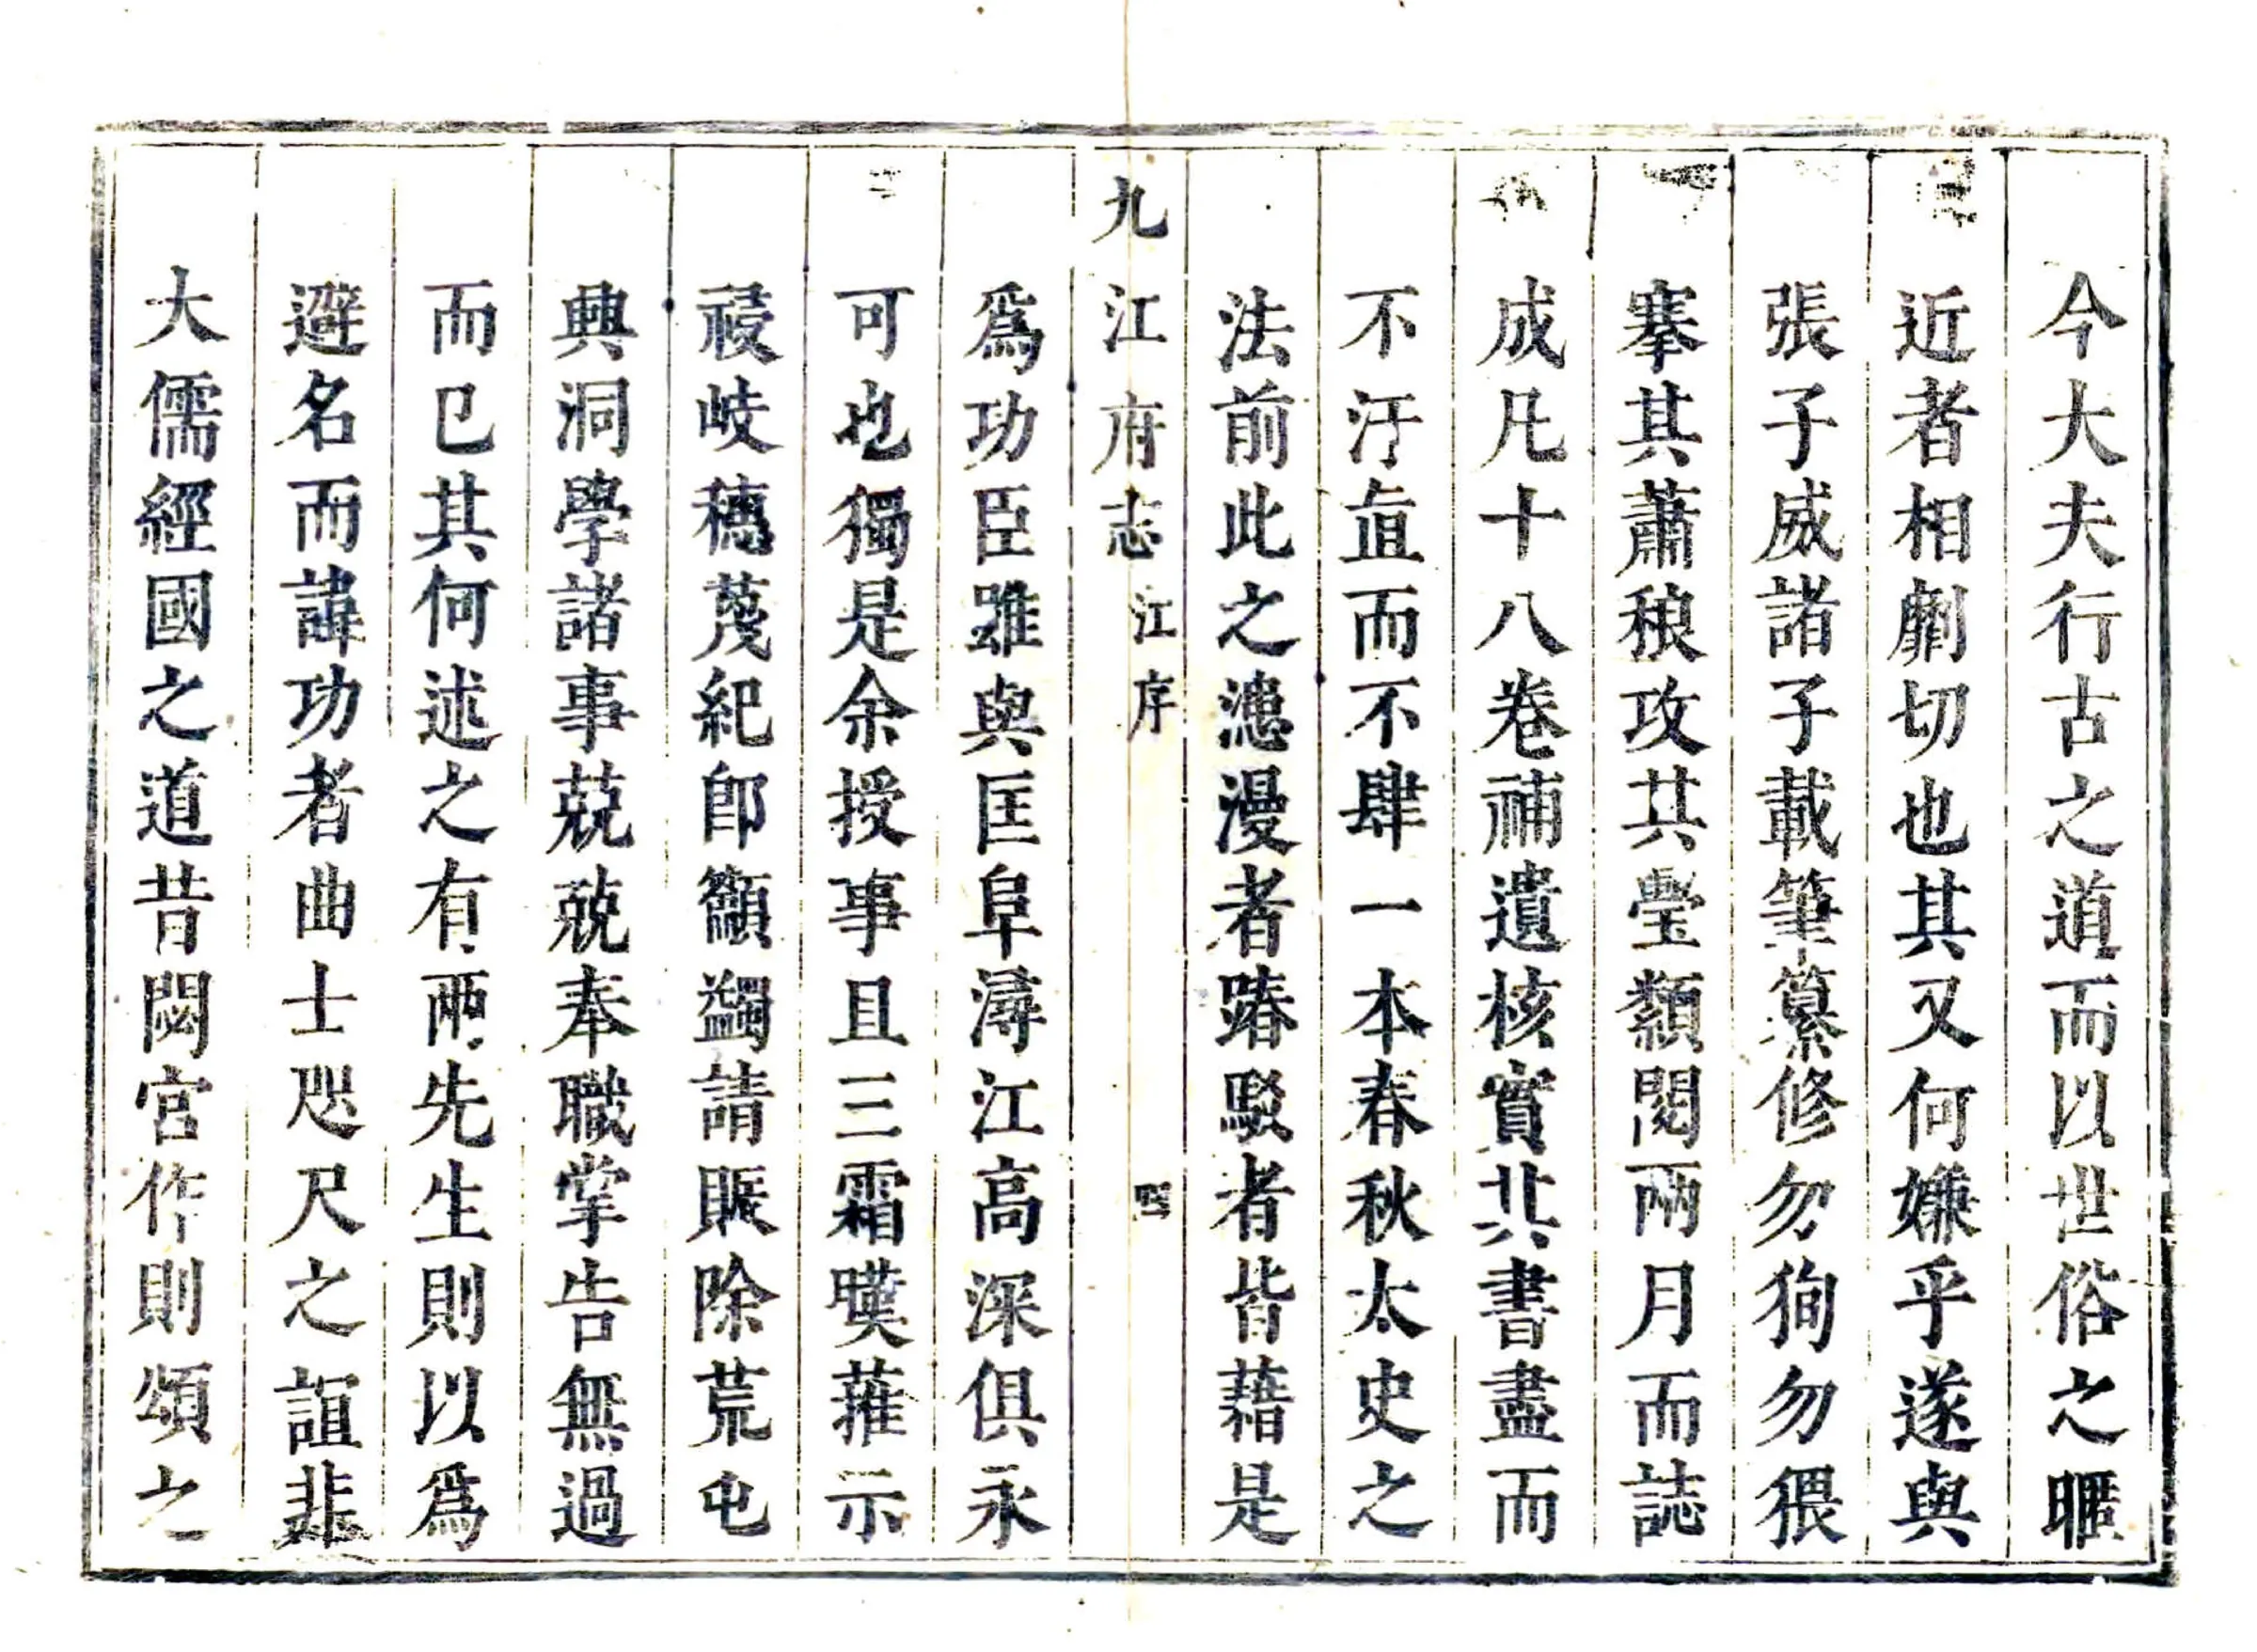 今大夫行古之道而以世俗之暱
近者相劘切也其又何嫌乎遂與
張子威諸子載筆纂修勿狥勿猥
搴其蕭稂攻其瑩纇閱兩月而誌
成凡十八卷補遺核實其書盡而
不汙直而不肆一本春秋太史之
法前此之漶漫者踳駁者皆藉是
九江府志 江序 四
爲功臣雖與匡阜潯江高深俱永
可也獨是余授事且三霜暵蓷示
祲岐穗蔑紀卽籲蠲請賑除荒屯
興洞學諸事兢兢奉職掌告無過
而已其何述之有兩先生則以爲
避名而諱功者曲士咫尺之誼非
大儒經國之道昔閟宮作則頌之